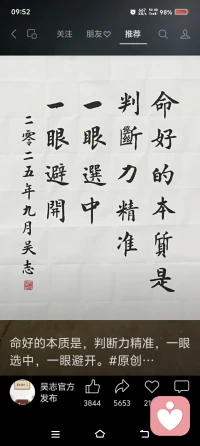 09:52
98%
关注
朋友♡
推荐
命好的本質是
判斷力精准
一眼選中
一眼避開
二零二五年九月吴志
命好的本质是，判断力精准，一眼
选中，一眼避开。#原创…
吴志官方
发布
3844
5653